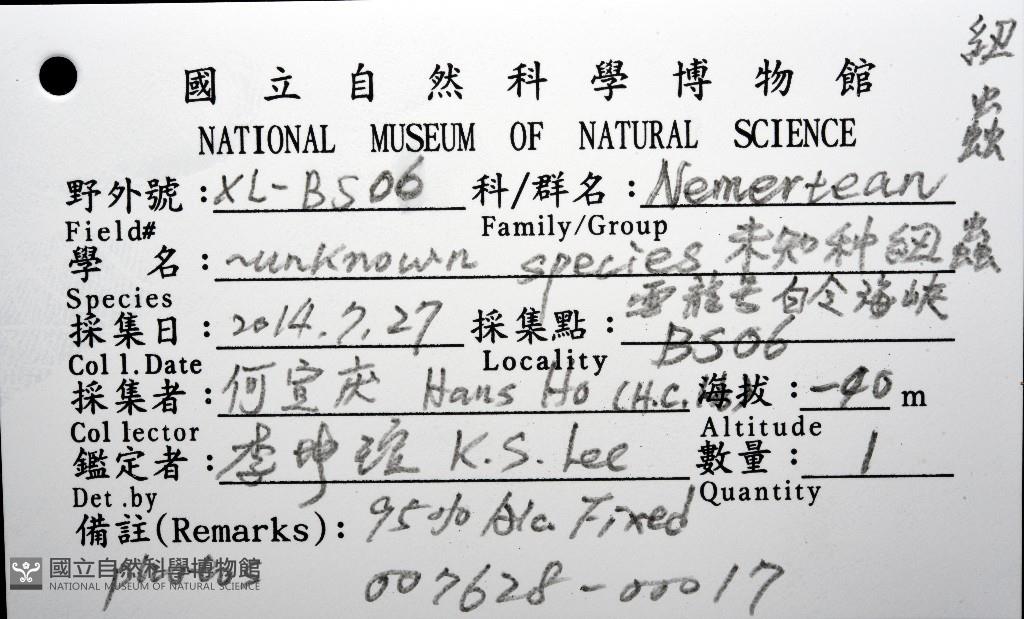 紐蟲
國立自然科學博物館
NATIONAL MUSEUM OF NATURAL SCIENCE
野外號：XL-BS06 科/群名：Nemertean
Field# Family/Group
學 名：~unknown species 未知种紐蟲
Species 雪龍号白令海峡
採集日：2014.7.27 採集點：BS06
Coll.Date Locality
採集者：何宣庆 Hans Ho (H.C. Ho) 海拔：-40 m
Collector Altitude
鑑定者：李坤瑄 K.S. Lee 數量：1
Det.by Quantity
備註(Remarks)：95% Alc. Fixed
photos 007628-00017
國立自然科學博物館
NATIONAL MUSEUM OF NATURAL SCIENCE